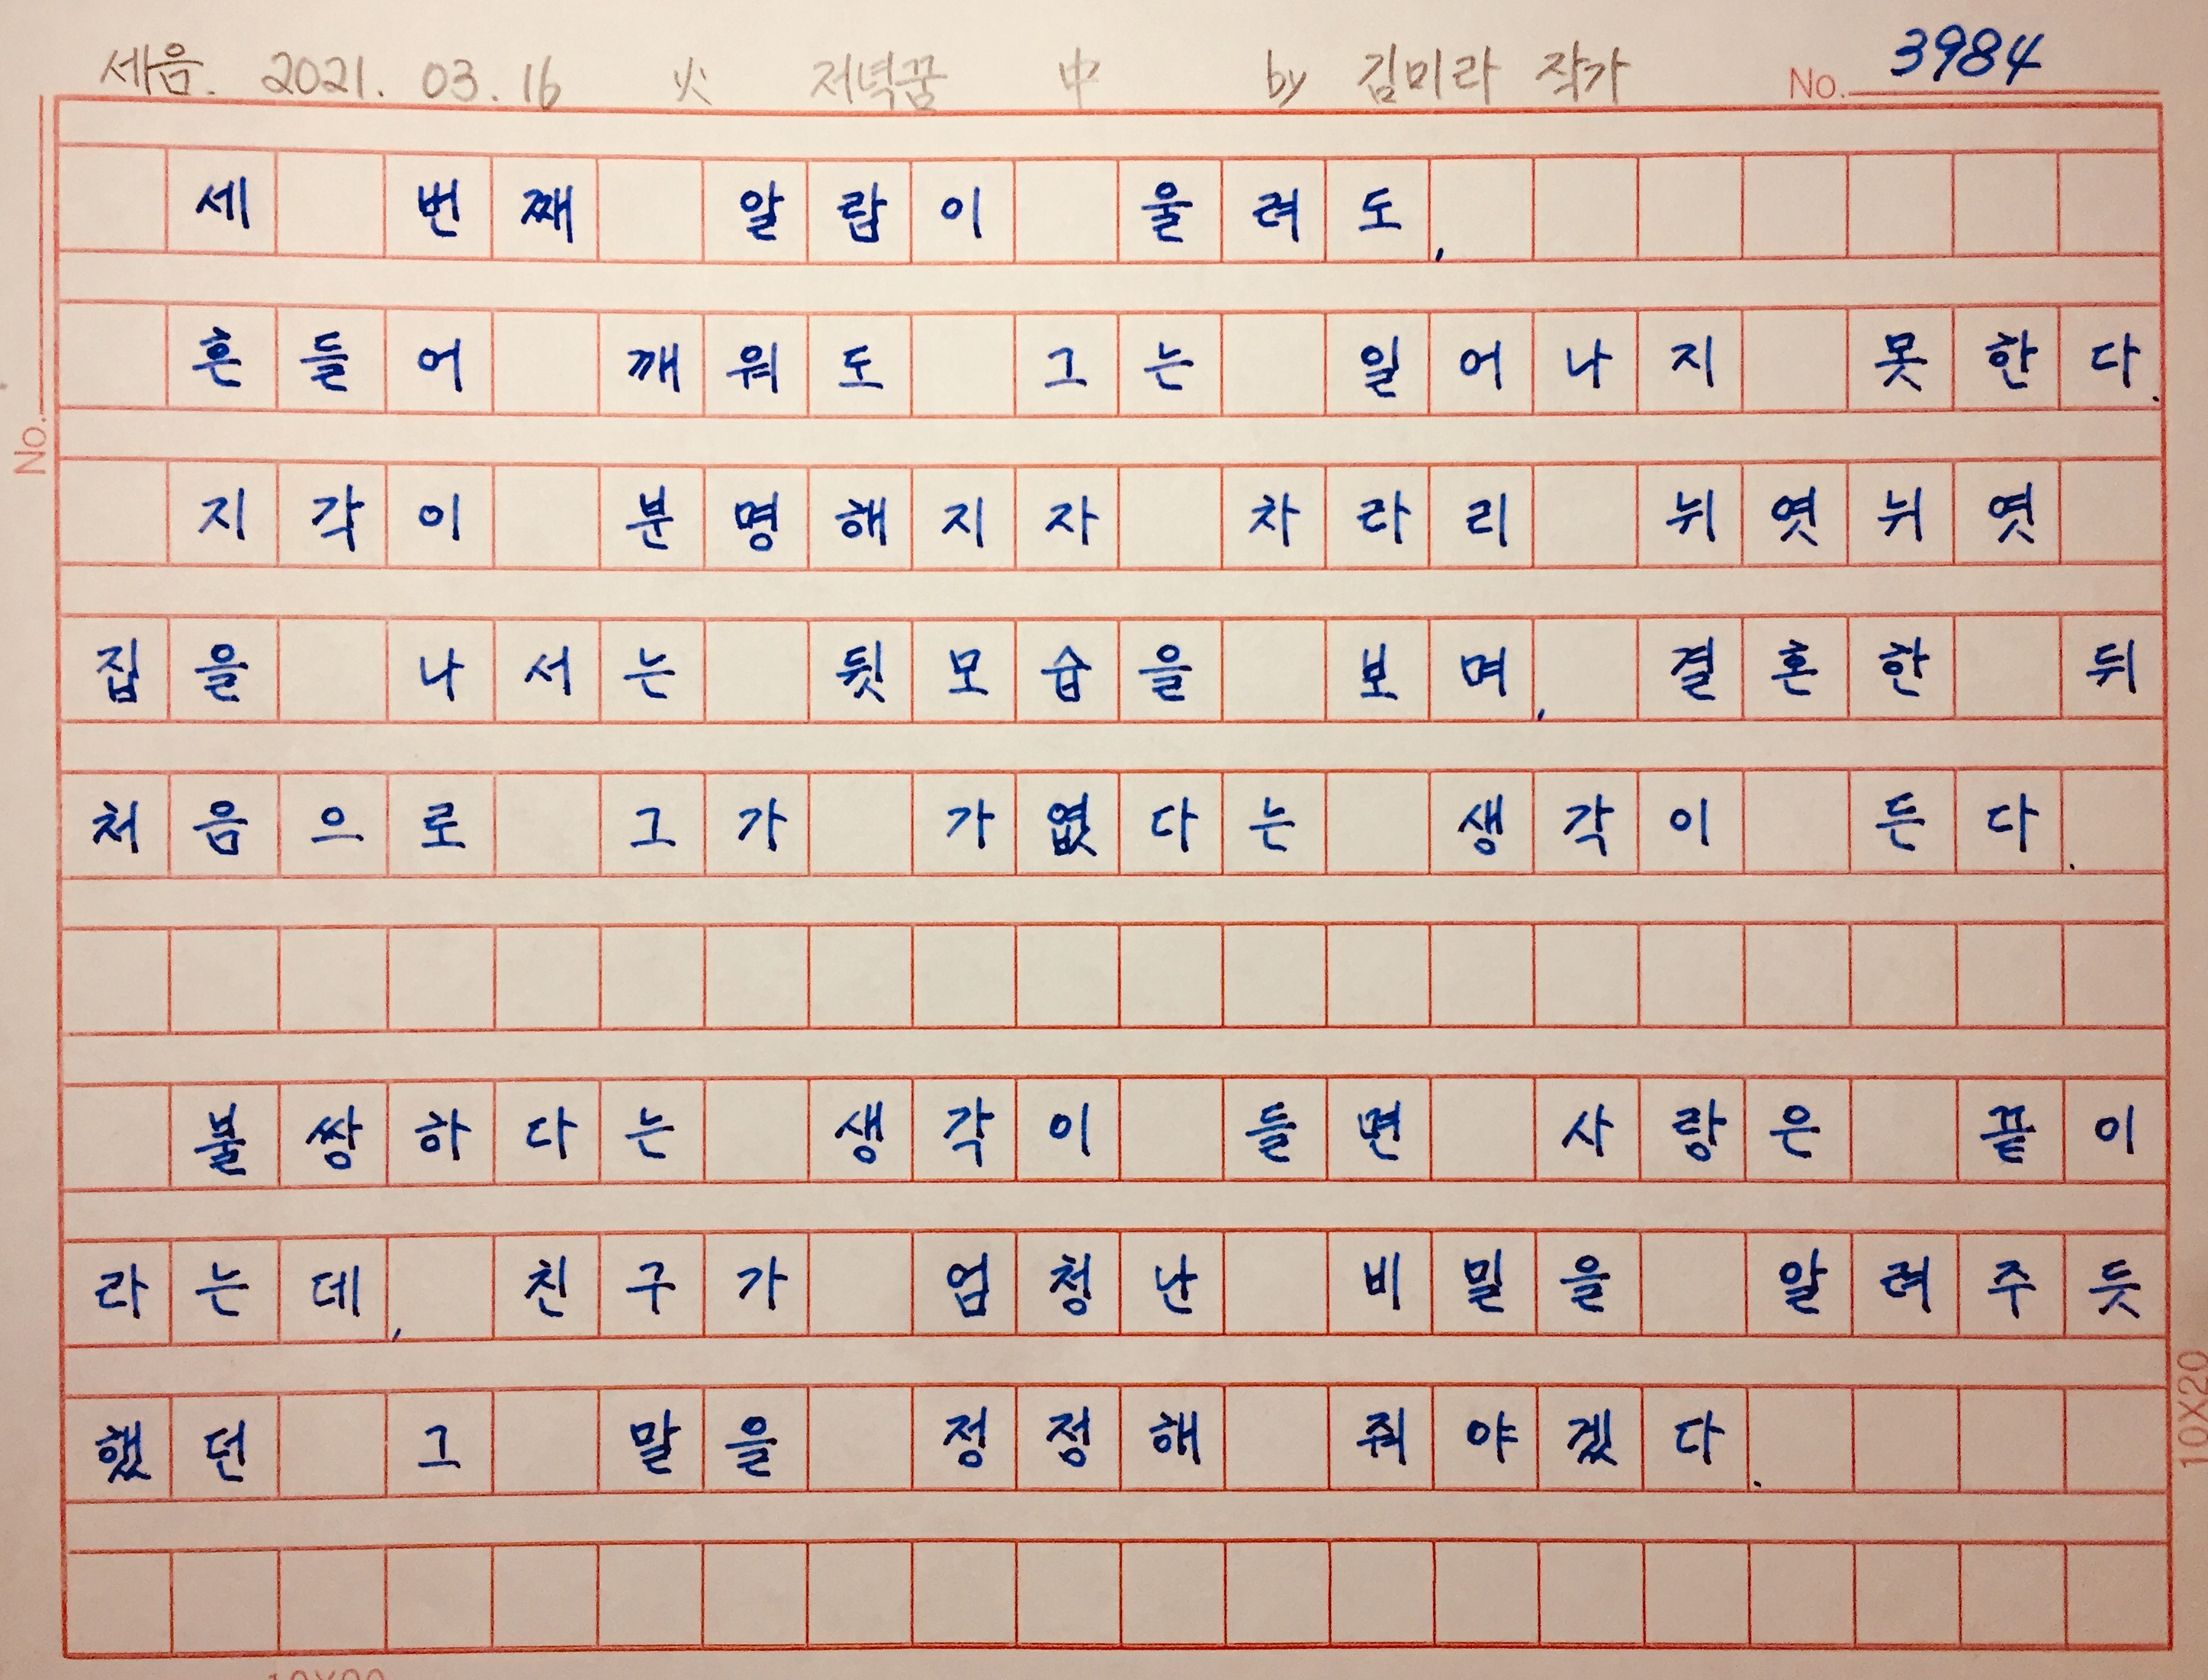 세음. 2021. 03. 16 火 저녁꿈 中 by 김미라 작가 No. 3984
세 번째 알람이 울려도,
흔들어 깨워도 그는 일어나지 못한다.
지각이 분명해지자 차라리 뉘엿뉘엿
집을 나서는 뒷모습을 보며, 결혼한 뒤
처음으로 그가 가엾다는 생각이 든다.
불쌍하다는 생각이 들면 사랑은 끝이
라는데, 친구가 엄청난 비밀을 알려주듯
했던 그 말을 정정해 줘야겠다.
No.
10X20